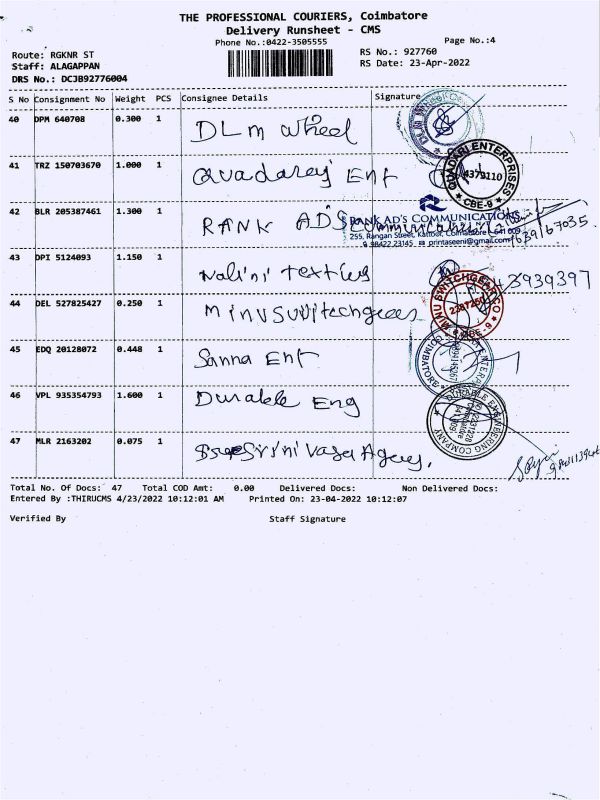 THE PROFESSIONAL COURIERS, Coimbatore
Delivery Runsheet - CMS
Phone No.:0422-3505555
Page No.:4
Route: RGKNR ST
RS No.: 927760
Staff: ALAGAPPAN
RS Date: 23-Apr-2022
DRS No.: DCJB92776004
S No Consignment No Weight PCS Consignee Details Signature
40 DPM 640708 0.300 1 DLM Wheel
41 TRZ 150703670 1.000 1 Quadarej Ent
QUADARI ENTERPRISES
4379110
★ CBE-9 ★
42 BLR 205387461 1.300 1 RANK AD'S Communications
RANK AD'S COMMUNICATIONS
255, Rangan Street, Kattoor, Coimbatore - 641 009
98422 23145 printaseeni@gmail.com
43 DPI 5124093 1.150 1 Nalini textiles
44 DEL 527825427 0.250 1 Minu Switchgears
MINU SWITCHGEAR CO
CBE-9
45 EDQ 20128072 0.448 1 Sanna Ent
COIMBATORE
46 VPL 935354793 1.600 1 Durable Eng
DURABLE ENGINEERING COMPANY
47 MLR 2163202 0.075 1 Srinivasa Agency.
Total No. Of Docs: 47 Total COD Amt: 0.00 Delivered Docs: Non Delivered Docs:
Entered By :THIRUCMS 4/23/2022 10:12:01 AM Printed On: 23-04-2022 10:12:07
Verified By Staff Signature